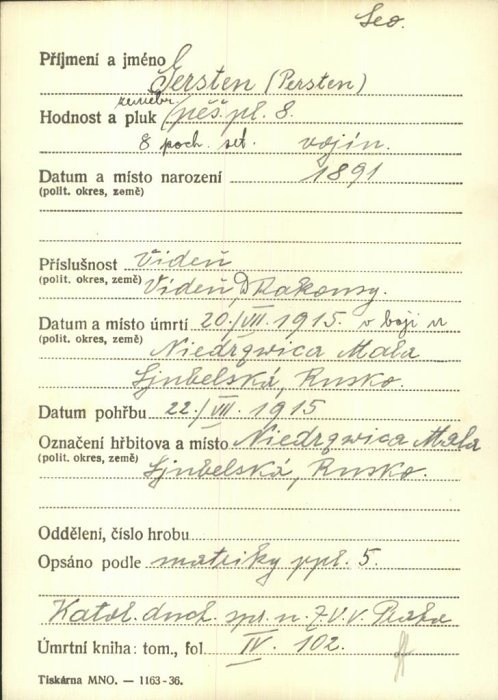 Leo.
Příjmení a jméno Gersten (Persten)
zeměbr.
Hodnost a pluk pěš. pl. 8.
8 poch. set. vojín.
Datum a místo narození 1891
(polit. okres, země)
Příslušnost Videň
(polit. okres, země) Videň, D. Rakousy.
Datum a místo úmrtí 20./VII. 1915. v boji u
(polit. okres, země) Niedrzwica Mala
Ljubelská, Rusko.
Datum pohřbu 22./VII. 1915
Označení hřbitova a místo Niedrzwica Mala
(polit. okres, země) Ljubelská, Rusko.
Oddělení, číslo hrobu
Opsáno podle matriky ppl. 5.
Katol. duch. spr. n. Z.V.V. Praha
Úmrtní kniha: tom., fol. IV. 102.
Tiskárna MNO. — 1163-36.